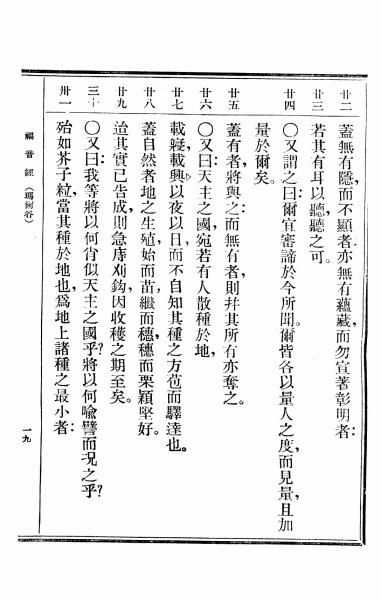 廿二 蓋無有隱,而不顯者亦無有蘊藏,而勿宣著彰明者:
廿三 若其有耳以聽,聽之可。
廿四 〇又謂之:曰:爾宜審諦於今所聞。爾皆各以量人之度,而見量,且加
量於爾矣。
廿五 蓋有者,將與之:而無有者,則幷其所有亦奪之。
廿六 〇又曰:天主之國,宛若有人散種於地,
廿七 載寢載興,以夜以日,而不自知其種之方苞而驛達也。
廿八 蓋自然者地之生殖,始而苗,繼而穗,穗而栗穎堅好。
廿九 迨其實已告成,則急庤刈鈎,因收穫之期至矣。
三十 〇又曰:我等將以何肖似天主之國乎?將以何喩譬而況之乎?
卅一 殆如芥子粒,當其種於地也,爲地上諸種之最小者:
福音經(瑪爾谷)
一九